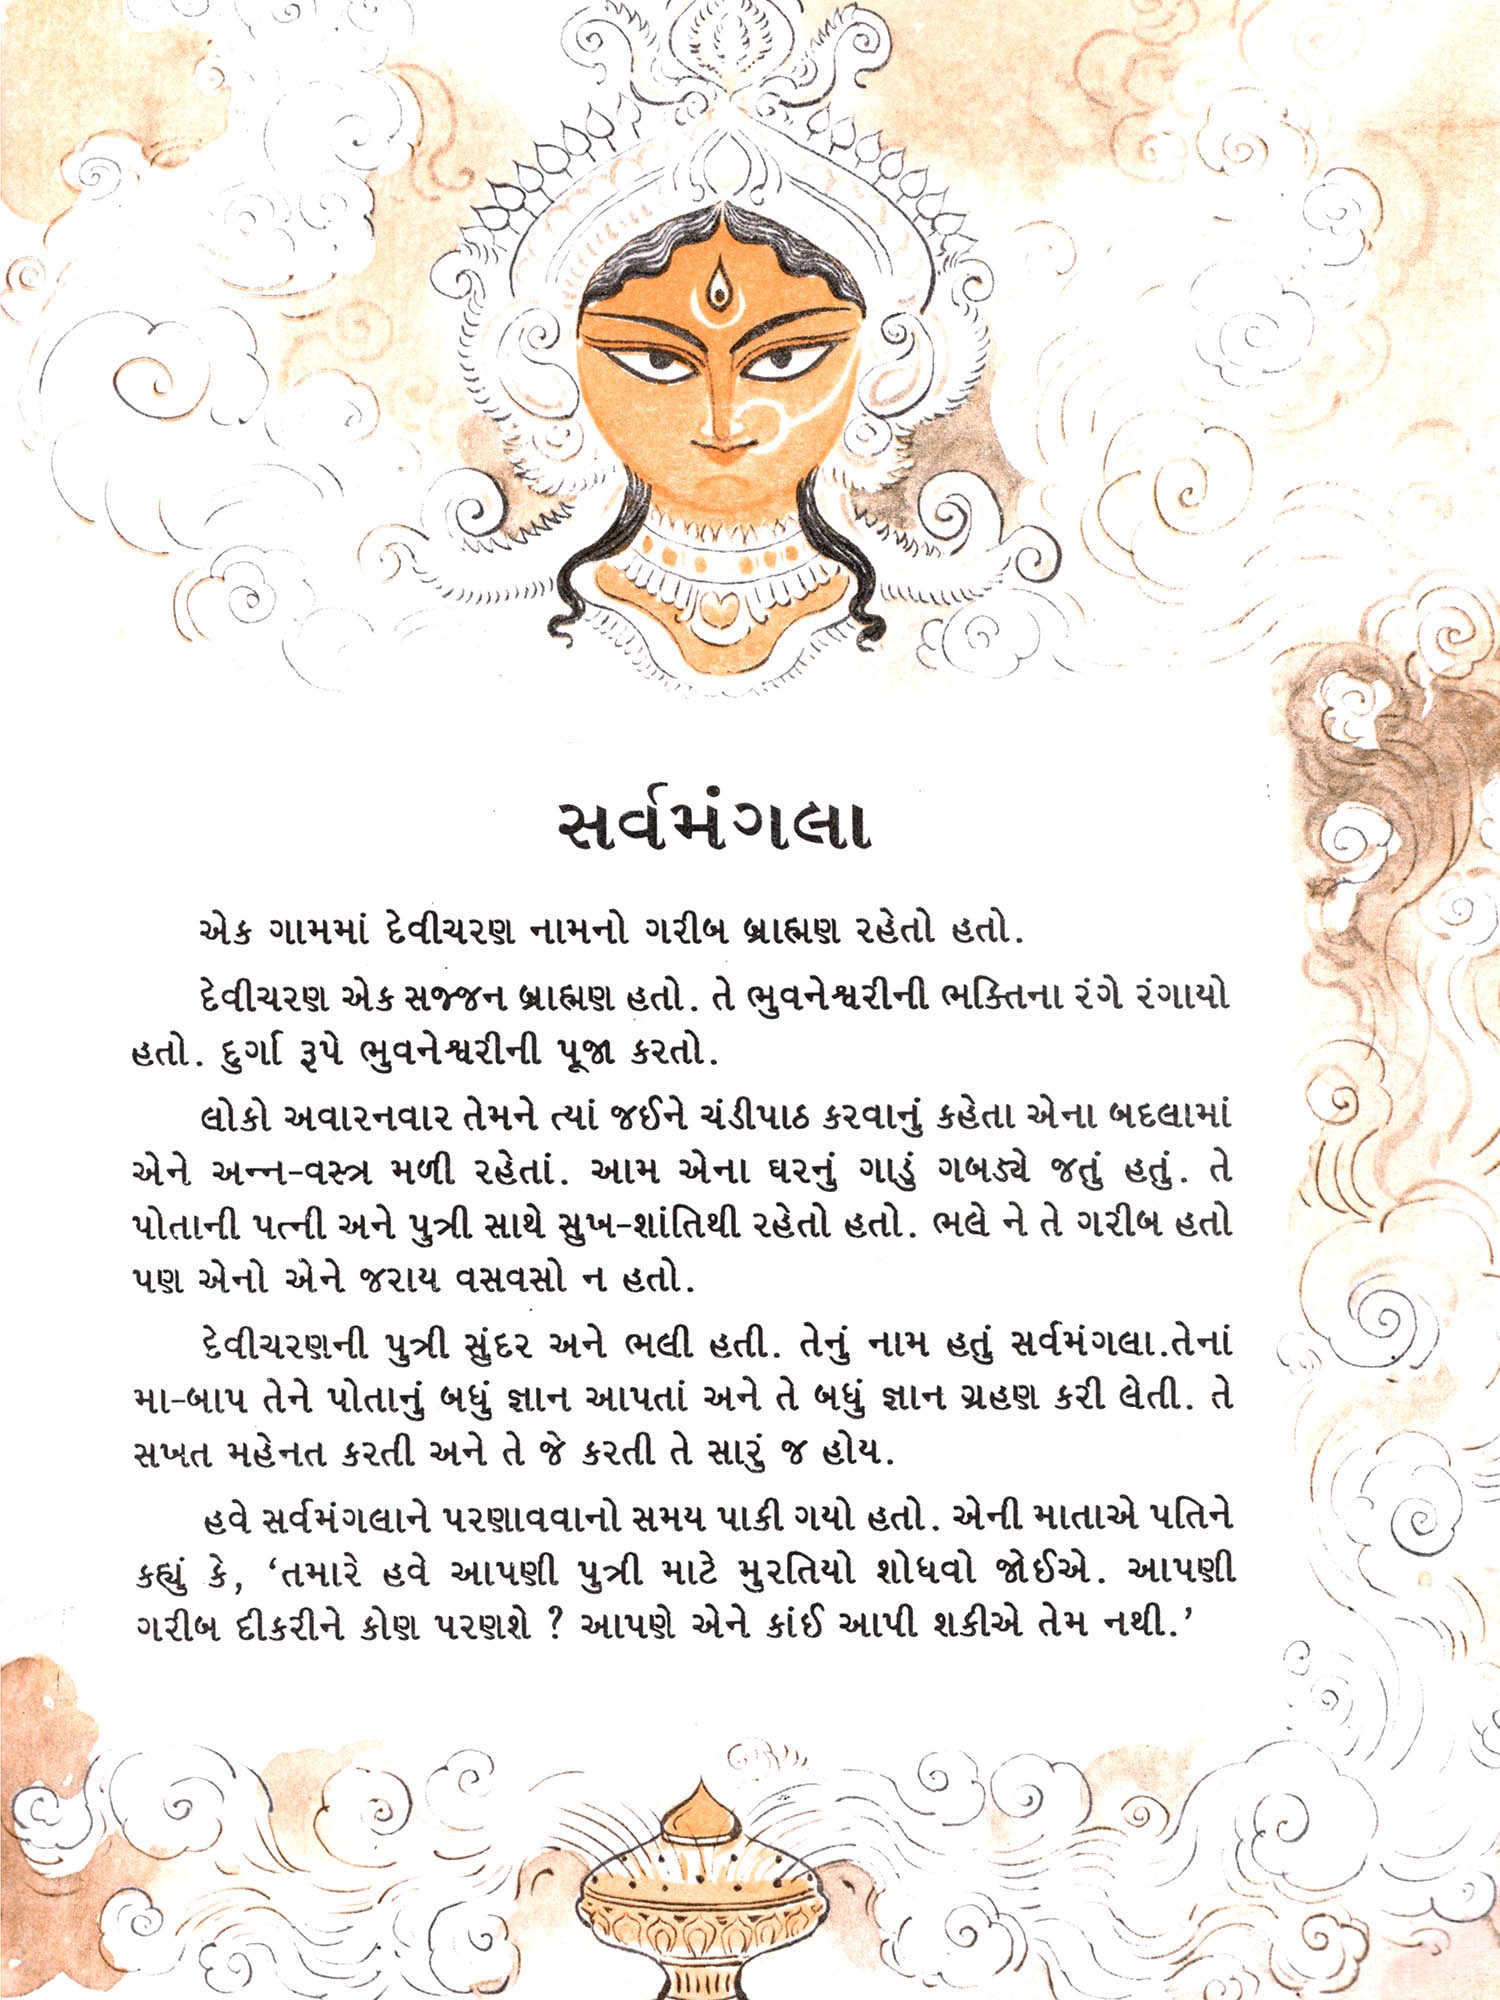 સર્વમંગલા
એક ગામમાં દેવીચરણ નામનો ગરીબ બ્રાહ્મણ રહેતો હતો.
દેવીચરણ એક સજ્જન બ્રાહ્મણ હતો. તે ભુવનેશ્વરીની ભક્તિના રંગે રંગાયો
હતો. દુર્ગા રૂપે ભુવનેશ્વરીની પૂજા કરતો.
લોકો અવારનવાર તેમને ત્યાં જઈને ચંડીપાઠ કરવાનું કહેતા એના બદલામાં
એને અન્ન-વસ્ત્ર મળી રહેતાં. આમ એના ઘરનું ગાડું ગબડ્યે જતું હતું. તે
પોતાની પત્ની અને પુત્રી સાથે સુખ-શાંતિથી રહેતો હતો. ભલે ને તે ગરીબ હતો
પણ એનો એને જરાય વસવસો ન હતો.
દેવીચરણની પુત્રી સુંદર અને ભલી હતી. તેનું નામ હતું સર્વમંગલા.તેનાં
મા-બાપ તેને પોતાનું બધું જ્ઞાન આપતાં અને તે બધું જ્ઞાન ગ્રહણ કરી લેતી. તે
સખત મહેનત કરતી અને તે જે કરતી તે સારું જ હોય.
હવે સર્વમંગલાને પરણાવવાનો સમય પાકી ગયો હતો. એની માતાએ પતિને
કહ્યું કે, ‘તમારે હવે આપણી પુત્રી માટે મુરતિયો શોધવો જોઈએ. આપણી
ગરીબ દીકરીને કોણ પરણશે ? આપણે એને કાંઈ આપી શકીએ તેમ નથી.’